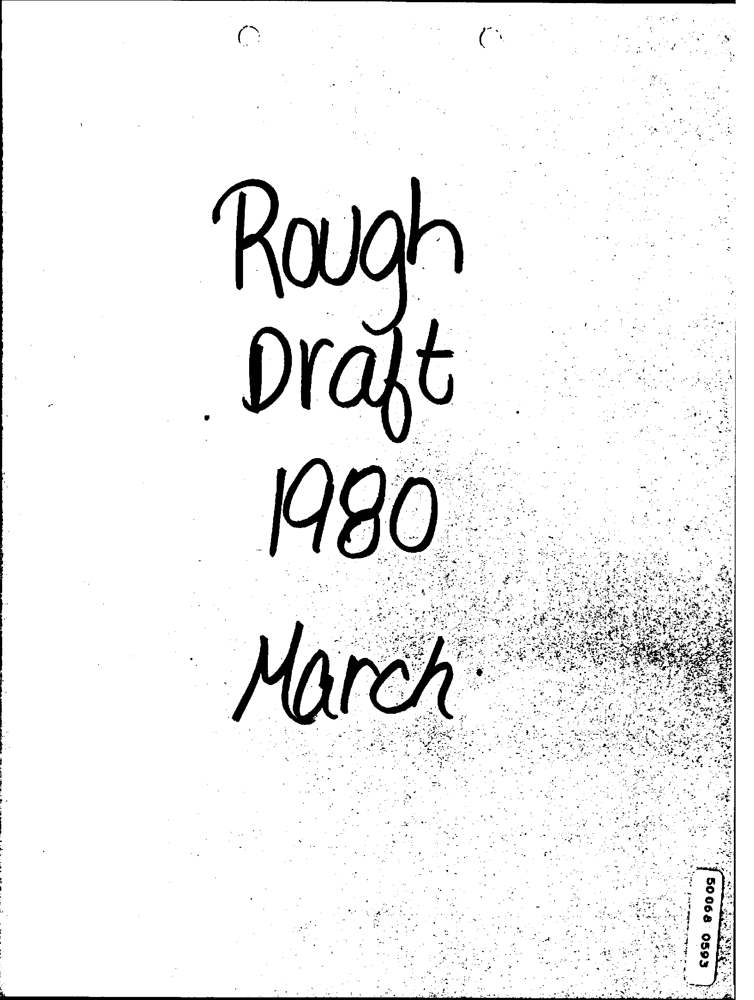 Rough
Draft
1980
March
50068 0593